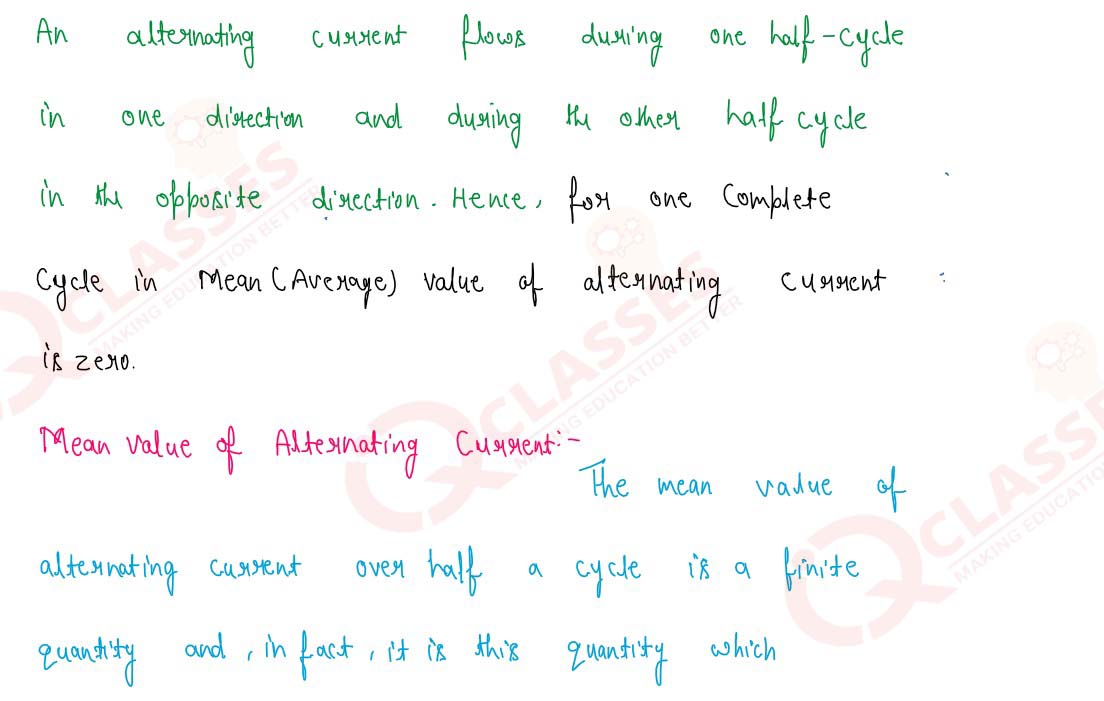 An alternating current flows during one half-cycle
in one direction and during the other half cycle
in the opposite direction. Hence, for one Complete
Cycle in Mean (Average) value of alternating current
is zero.
Mean value of Alternating Current:-
The mean value of
alternating current over half a cycle is a finite
quantity and, in fact, it is this quantity which
CLASSES
MAKING EDUCATION BETTER
CLASSES
MAKING EDUCATION BETTER
CLASSES
MAKING EDUCATION